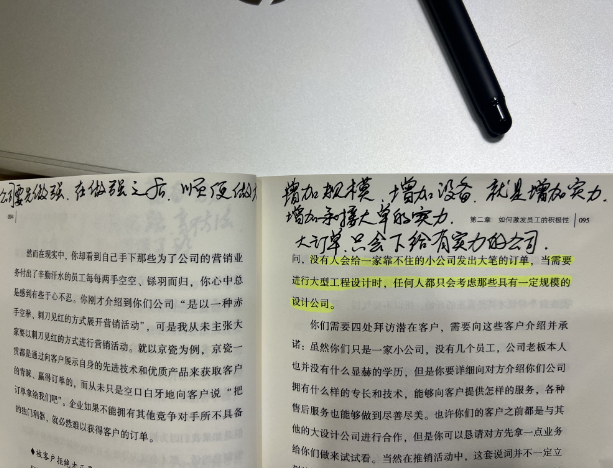 公司要先做强.在做强之后.顺便做大
094
然而在现实中，你却看到自己手下那些为了公司的营销业
务付出了辛勤汗水的员工每每两手空空、铩羽而归，你心中总
是感到有些于心不忍。你刚才介绍到你们公司“是以一种赤
手空拳、刺刀见红的方式展开营销活动”，可是我从未主张大
家要以刺刀见红的方式进行营销活动。就以京瓷为例，京瓷一
贯都是通过向客户展示自身的先进技术和优质产品来获取客户
的青睐、赢得订单的，而从未只是空口白牙地向客户说“把
订单拿给我们吧”。企业如果不能拥有其他竞争对手所不具备
的独门利器，就必然难以获得客户的订单。
增加规模.增加设备.就是增加实力.
增加承接大单的实力.
第二章 如何激发员工的积极性 095
大订单.只会下给有实力的公司.
问，没有人会给一家靠不住的小公司发出大笔的订单，当需要
进行大型工程设计时，任何人都只会考虑那些具有一定规模的
设计公司。
你们需要四处拜访潜在客户，需要向这些客户介绍并承
诺：虽然你们只是一家小公司，没有几个员工，公司老板本人
也并没有什么显赫的学历，但是你要详细向对方介绍你们公司
拥有什么样的专长和技术，能够向客户提供怎样的服务，各种
售后服务也能够做到尽善尽美。也许你们的客户之前都是与其
他的大设计公司进行合作，但是你可以恳请对方先拿一点业务
给你们做来试试看。当然在推销活动中，这套说词并不一定立